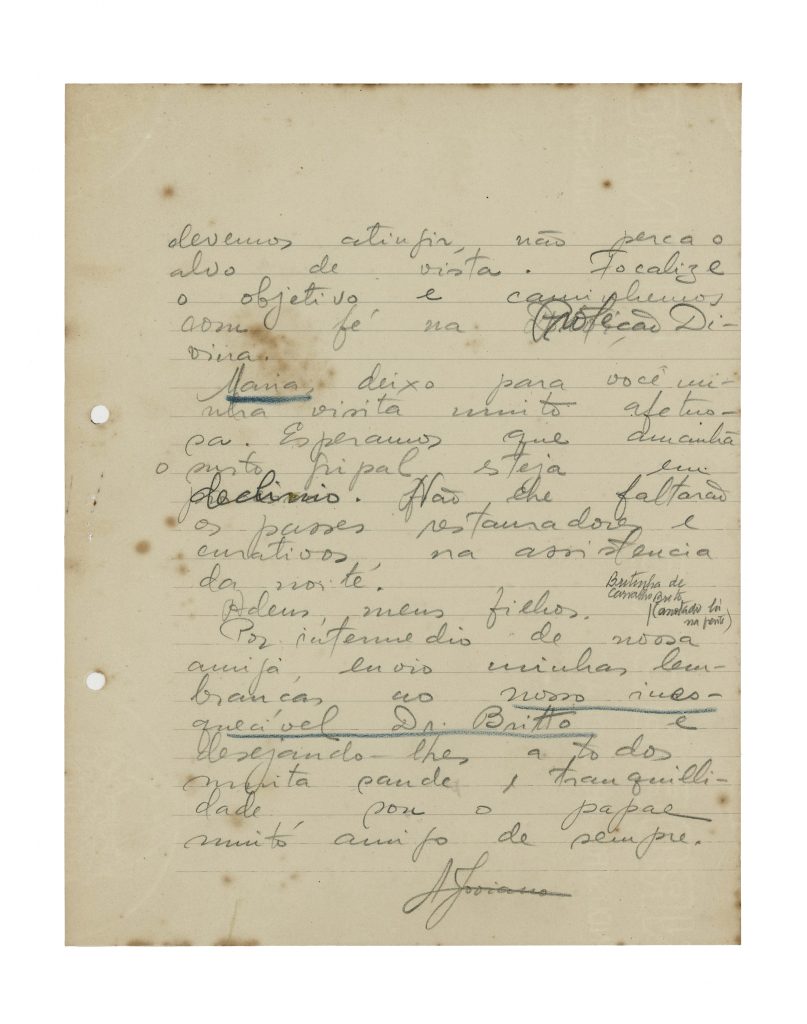 devemos atingir, não perca o
alvo de vista. Focalize
o objetivo e caminhemos
com fé na Proteção Di-
vina.
Maria, deixo para você mi-
nha visita muito afetuo-
sa. Esperamos que amanhã
o surto gripal esteja em
declinio. Não lhe faltarão
os passes restauradores e
curativos, na assistencia
da noite.
Adeus, meus filhos.
Britinha de
Carvalho Brito
(anotado
Por intermedio de nossa
amiga, envio minhas lem-
branças ao nosso ines-
quecível Dr. Britto e
desejando-lhes a todos
muita saude e tranquilli-
dade, sou o papae
muito amigo de sempre.
A Joviano